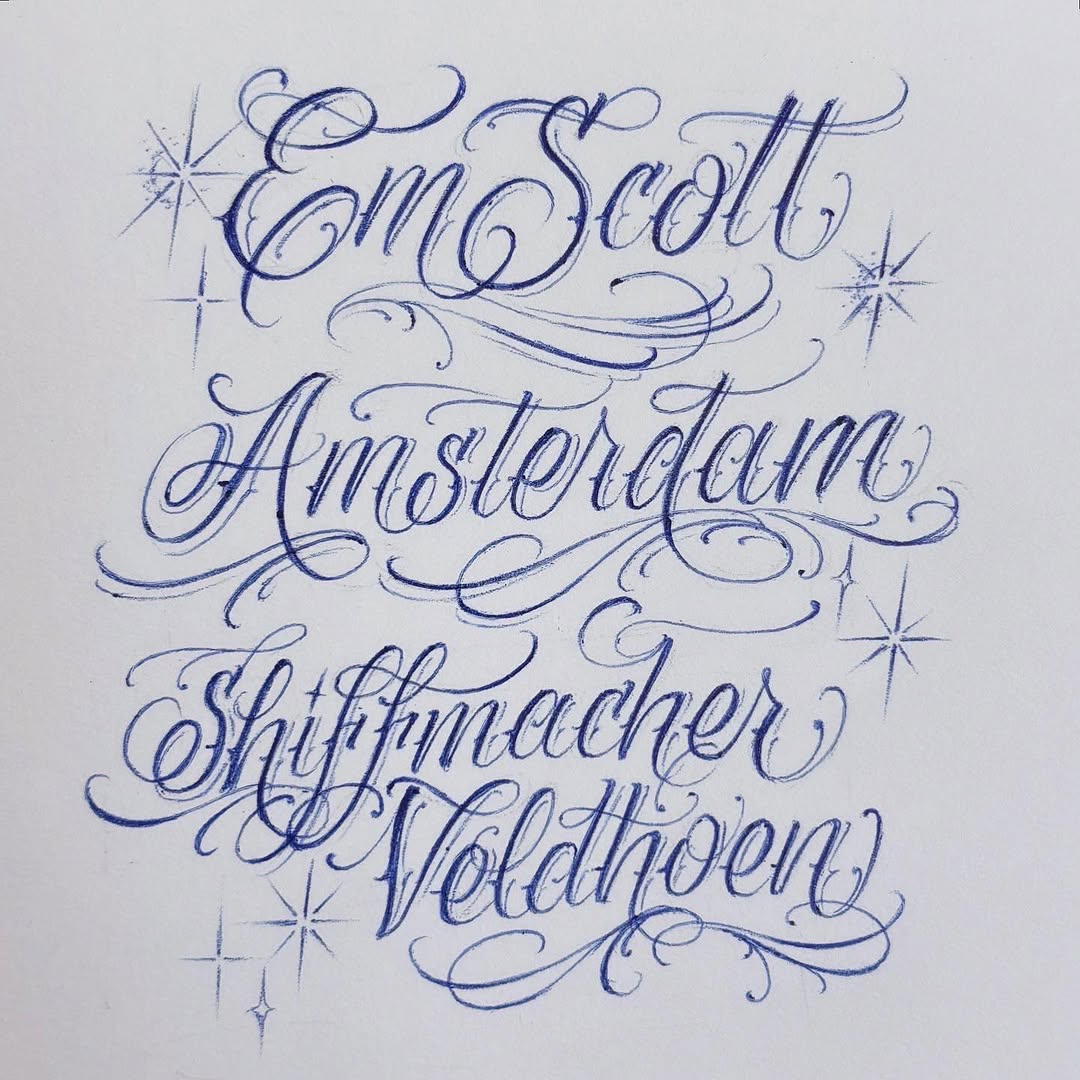 Em Scott
Amsterdam
Shiffmacher
Voldthoen